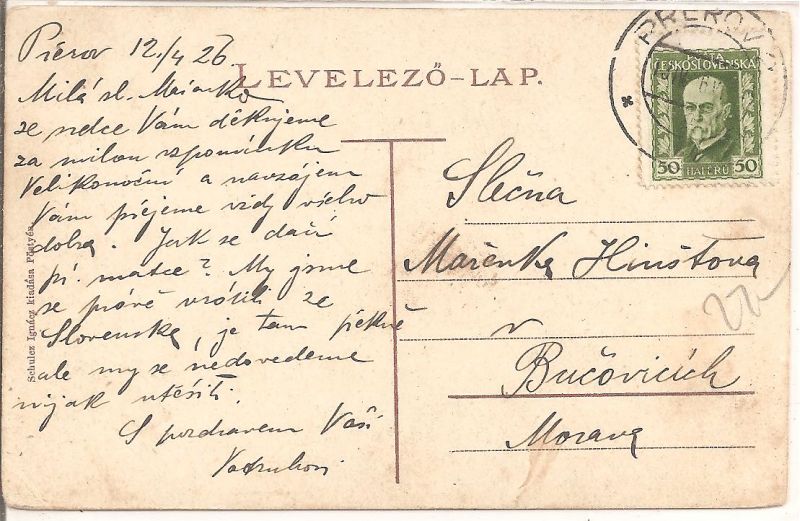 Přerov 12./4 26.
LEVELEZŐ-LAP.
Milá sl. Mařenko
ze srdce Vám děkujeme
za milou vzpomínku
Velikonoční a navzájem
Vám přejeme vždy všeho
dobra. Jak se daří
pí. matce? My jsme
se právě vrátili ze
Slovenska, je tam pěkně
ale my se nedovedeme
nijak utěšiti.
S pozdravem Vaši
Schulcz Ignácz kiadása Pöstyén
PŘEROV
ČESKOSLOVENSKÁ
50 HALÉŘŮ 50
Slečna
Mařenka Hinštova
v
Bučovicích
Morava